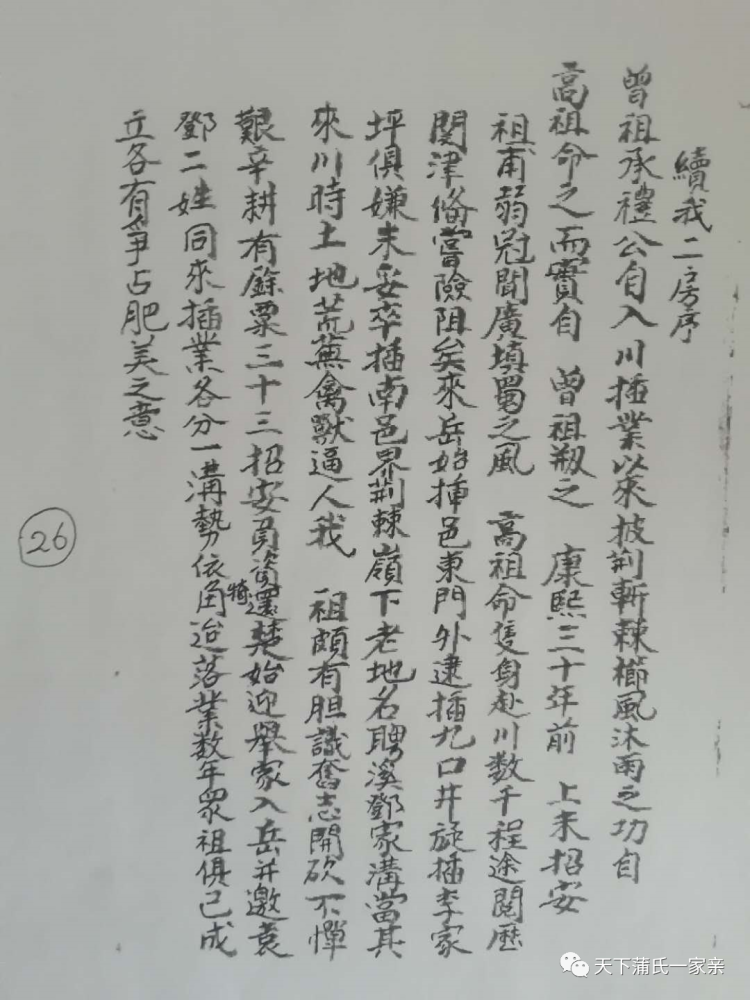 續我二房序
曾祖承禮公自入川插業以來披荆斬棘櫛風沐雨之功自
高祖命之而實自 曾祖剏之 康熙三十年前 上未招安
祖甫弱冠聞廣填蜀之風 高祖命隻身赴川数千程途閱歷
関津俻嘗險阻矣來岳始插邑東門外逮插九口井旋插李家
坪俱嫌未妥卒插南邑界荆棘嶺下老地名聘溪鄧家溝當其
來川時土地荒蕪禽獸逼人我 祖頗有胆識奮志開砍不憚
艱辛耕有餘粟三十三招安員資還楚始迎舉家入岳并邀袁
鄧二姓同來插業各分一溝勢依犄角迨落業数年衆祖俱已成
立各有爭占肥美之意
26
天下蒲氏一家亲